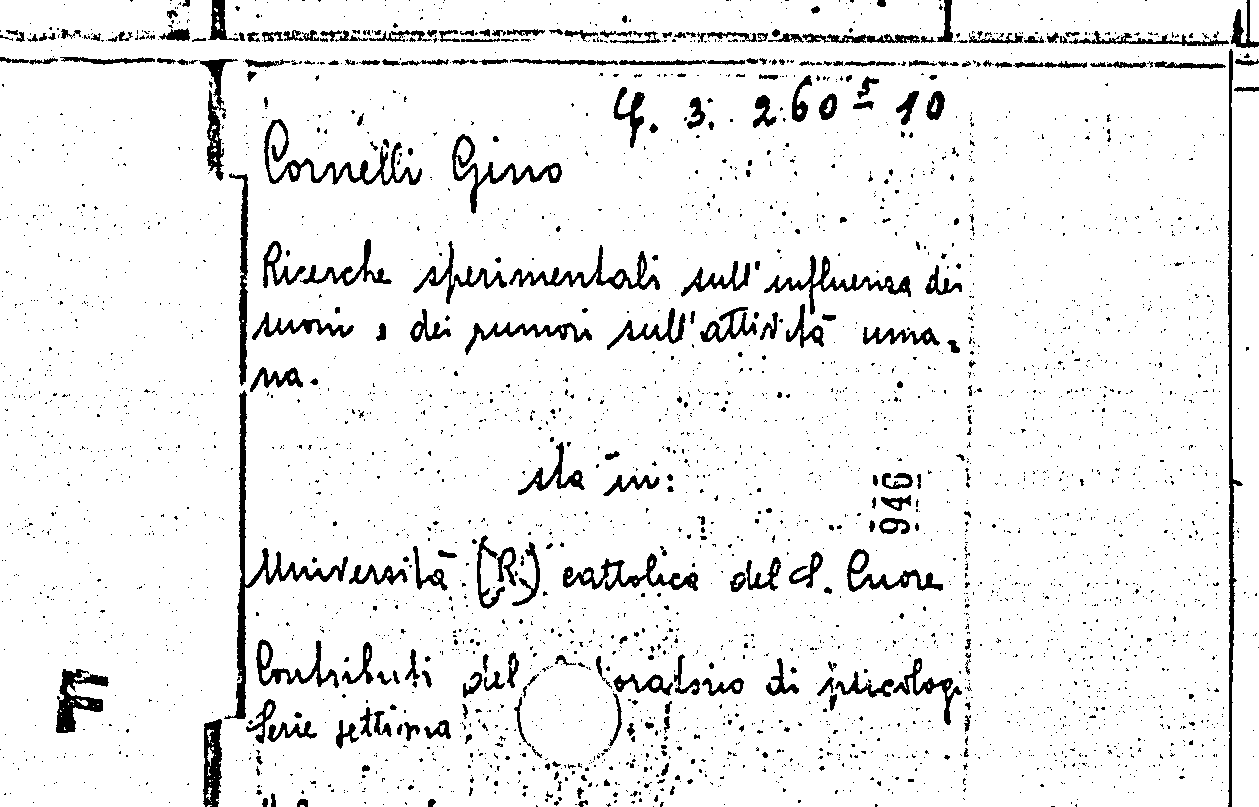 4. 3. 260 5 10
Cornelli Gino
Ricerche sperimentali sull'influenza dei
suoni e dei rumori sull'attività uma=
na.
sta in:
946
Università (R.) cattolica del S. Cuore
Contributi del oratorio di psicolog.
Serie settima
F